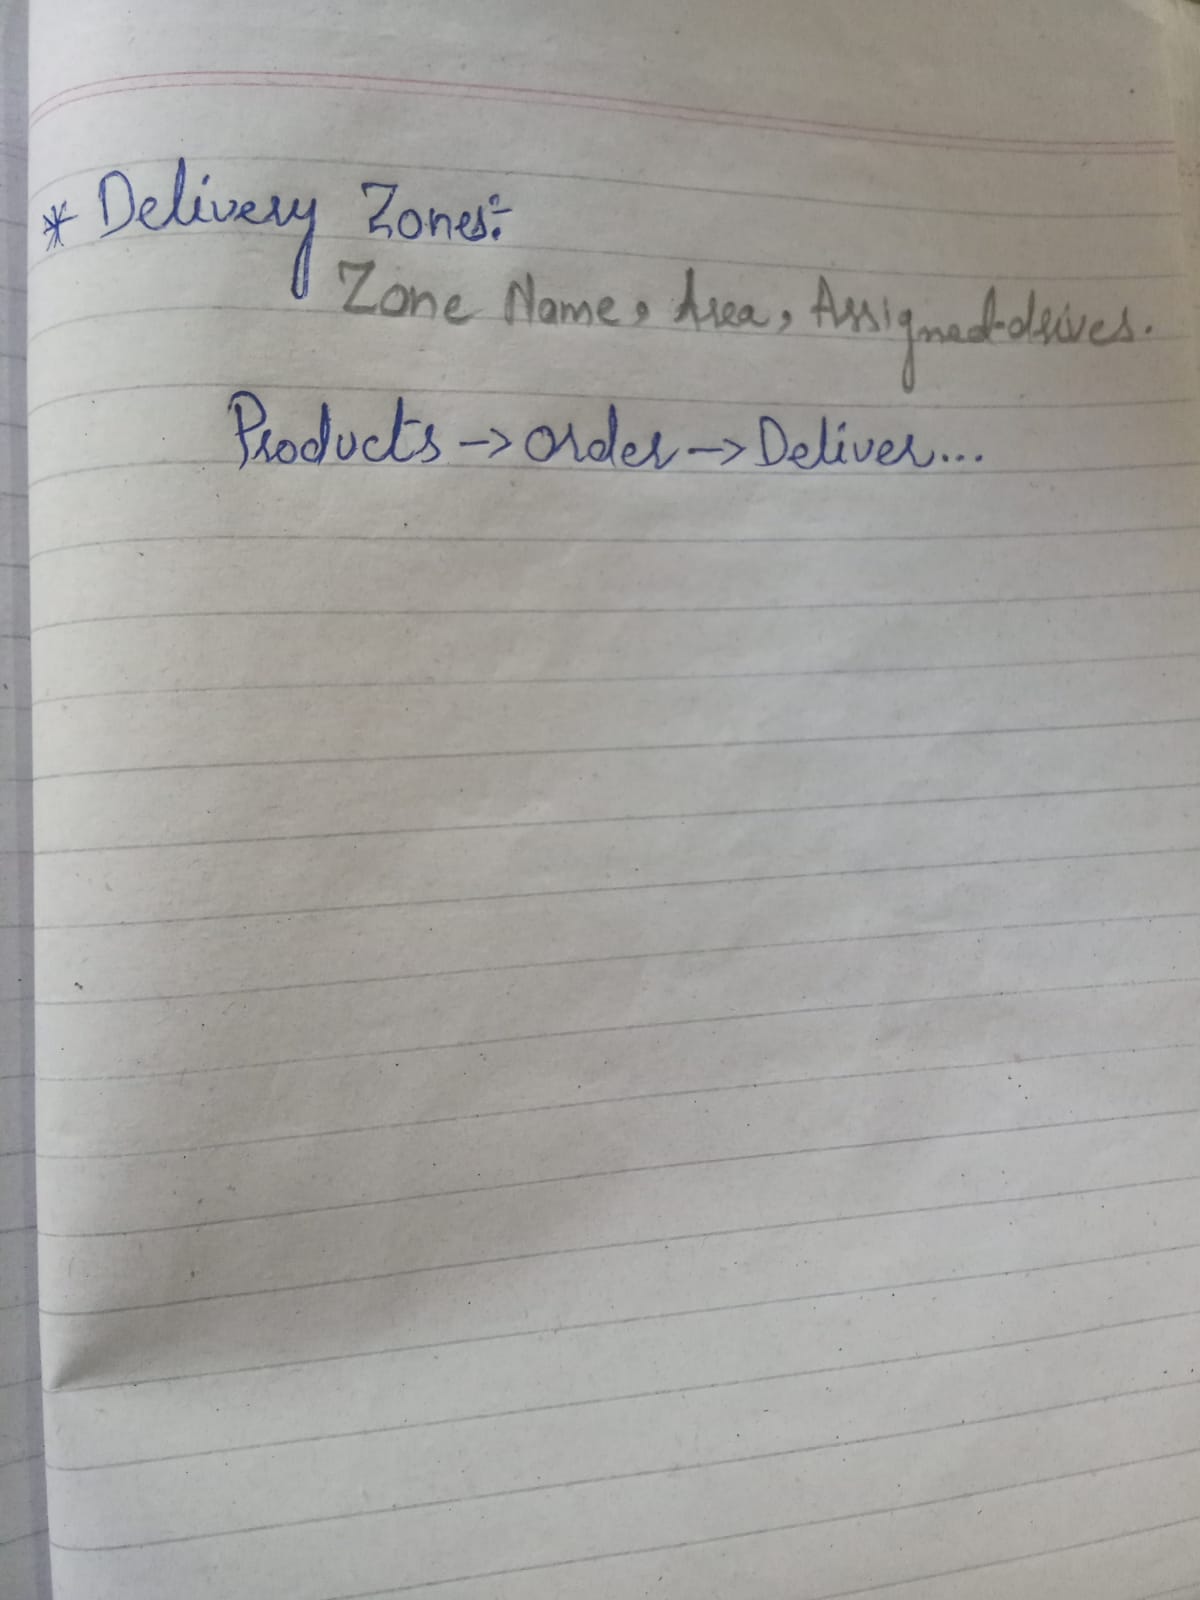 * Delivery Zones:-
Zone Name, Area, Assigned-drives.
Products -> Order -> Deliver...